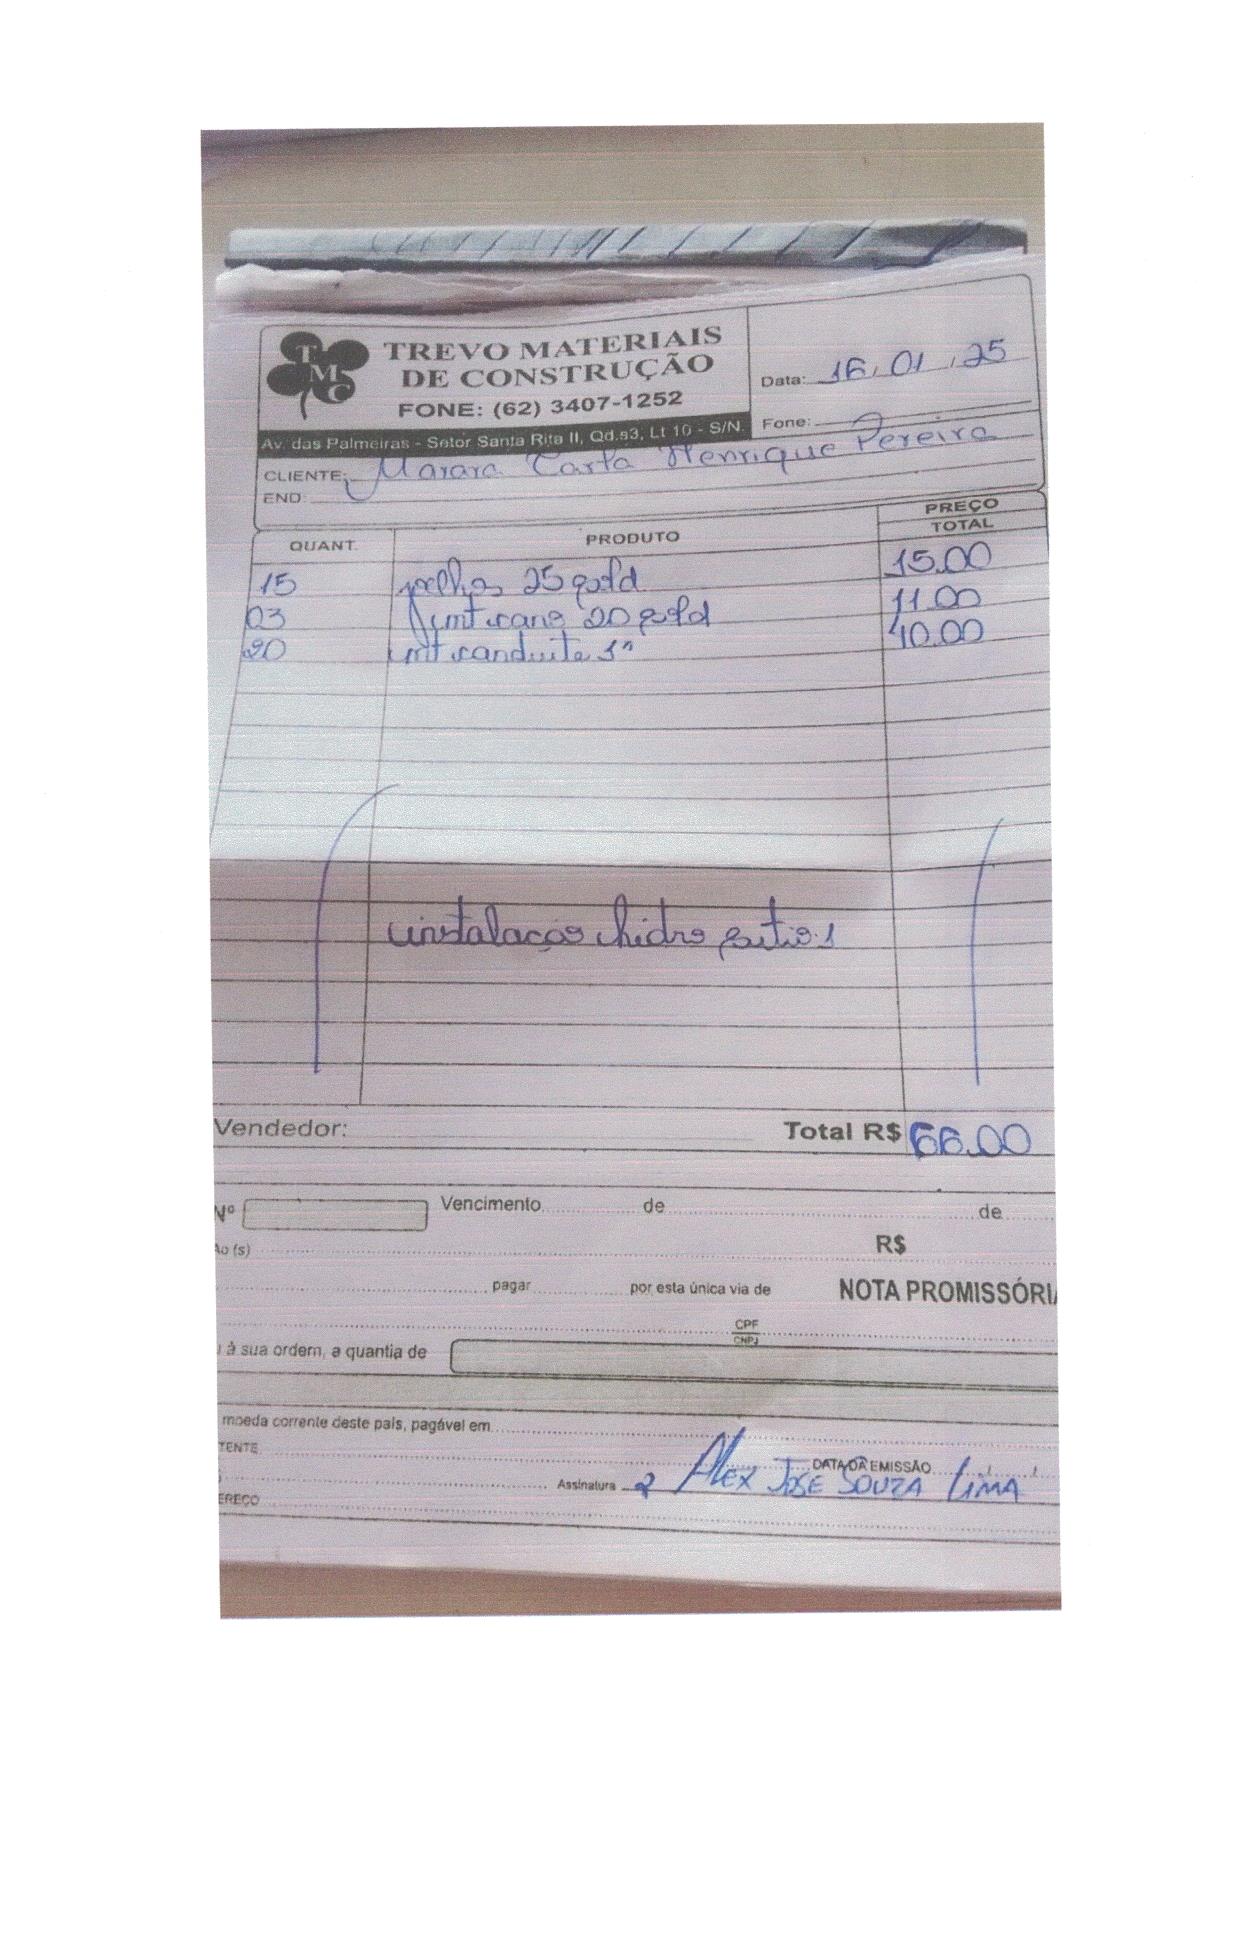 TMC
TREVO MATERIAIS
DE CONSTRUÇÃO
FONE: (62) 3407-1252
Av. das Palmeiras - Setor Santa Rita II, Qd.s3, Lt 10 - S/N.
Data: 16, 01, 25
Fone:
CLIENTE: Marara Carla Henrique Pereira
END:
QUANT. PRODUTO PREÇO TOTAL
15 joelhos 25 gold 15.00
03 mt cano 20 gold 11.00
20 mt conduite 1" 40.00
instalaçao hidro patio 1
Vendedor: Total R$ 66.00
Nº Vencimento de de
Ao (s) R$
pagar por esta única via de NOTA PROMISSÓRIA
CPF
CNPJ
à sua ordem, a quantia de
moeda corrente deste país, pagável em
TENTE
DATA DA EMISSÃO
Assinatura Alex Jose Souza Lima
EREÇO